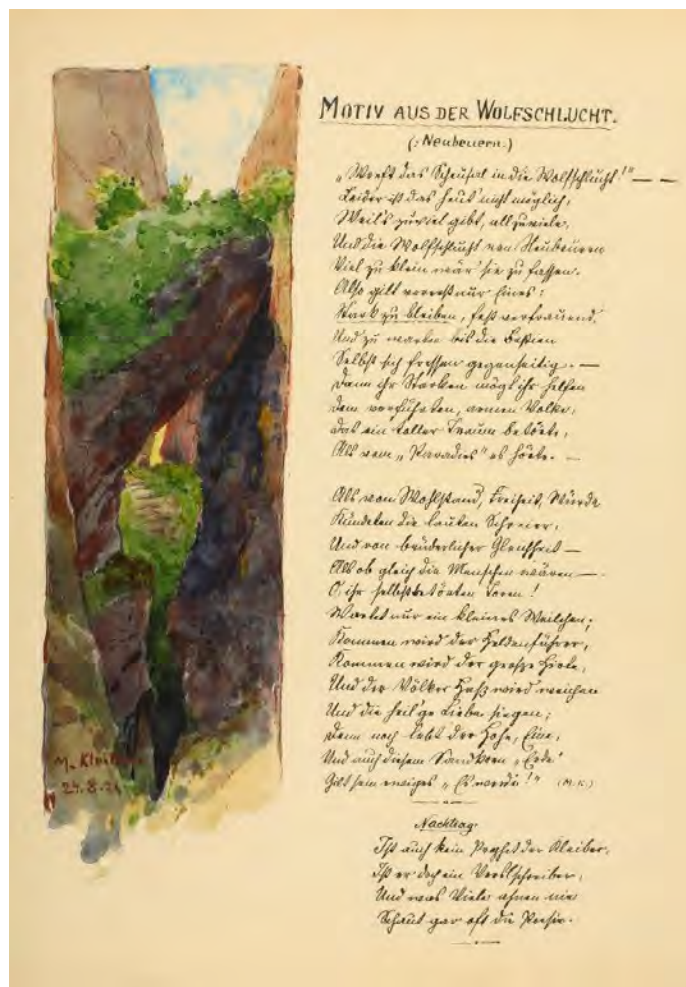 MOTIV AUS DER WOLFSCHLUCHT.
(: Neubeuern :)
„Werft das Scheusal in die Wolfsschlucht!" — —
Leider ist das heut' nicht möglich,
Weil's zuviel gibt, allzuviele,
Und die Wolfschlucht von Neubeuern
Viel zu klein wär' sie zu fassen.
Also gilt vorerst nur Eines:
Stark zu bleiben, fest vertrauend,
Und zu warten bis die Bestien
Selbst sich fressen gegenseitig. —
Dann ihr Starken mögt ihr helfen
Dem verführten, armen Volke,
Das ein toller Traum betörte,
Als vom „Paradies" es hörte. —
Als von Wohlstand, Freiheit, Würde
Kündeten die lauten Schreier,
Und von brüderlicher Gleichheit —
Als ob gleich die Menschen wären —
O, ihr selbstbetörten Toren!
Wartet nur ein kleines Weilchen;
Kommen wird der Heldenführer,
Kommen wird der große Hirte,
Und der Völker Haß wird weichen
Und die heil'ge Liebe siegen;
Denn noch lebt der Hohe, Eine,
Und auch diesem Sandkorn „Erde"
Gilt sein ewiges „Es werde!" (M.K.)
Nachtrag:
Ist auch kein Prophet der Kleiber,
Ist er doch ein Verslschreiber,
Und was Viele ahnen nie
Schaut gar oft die Poesie.
M. Kleiber
24.8.21